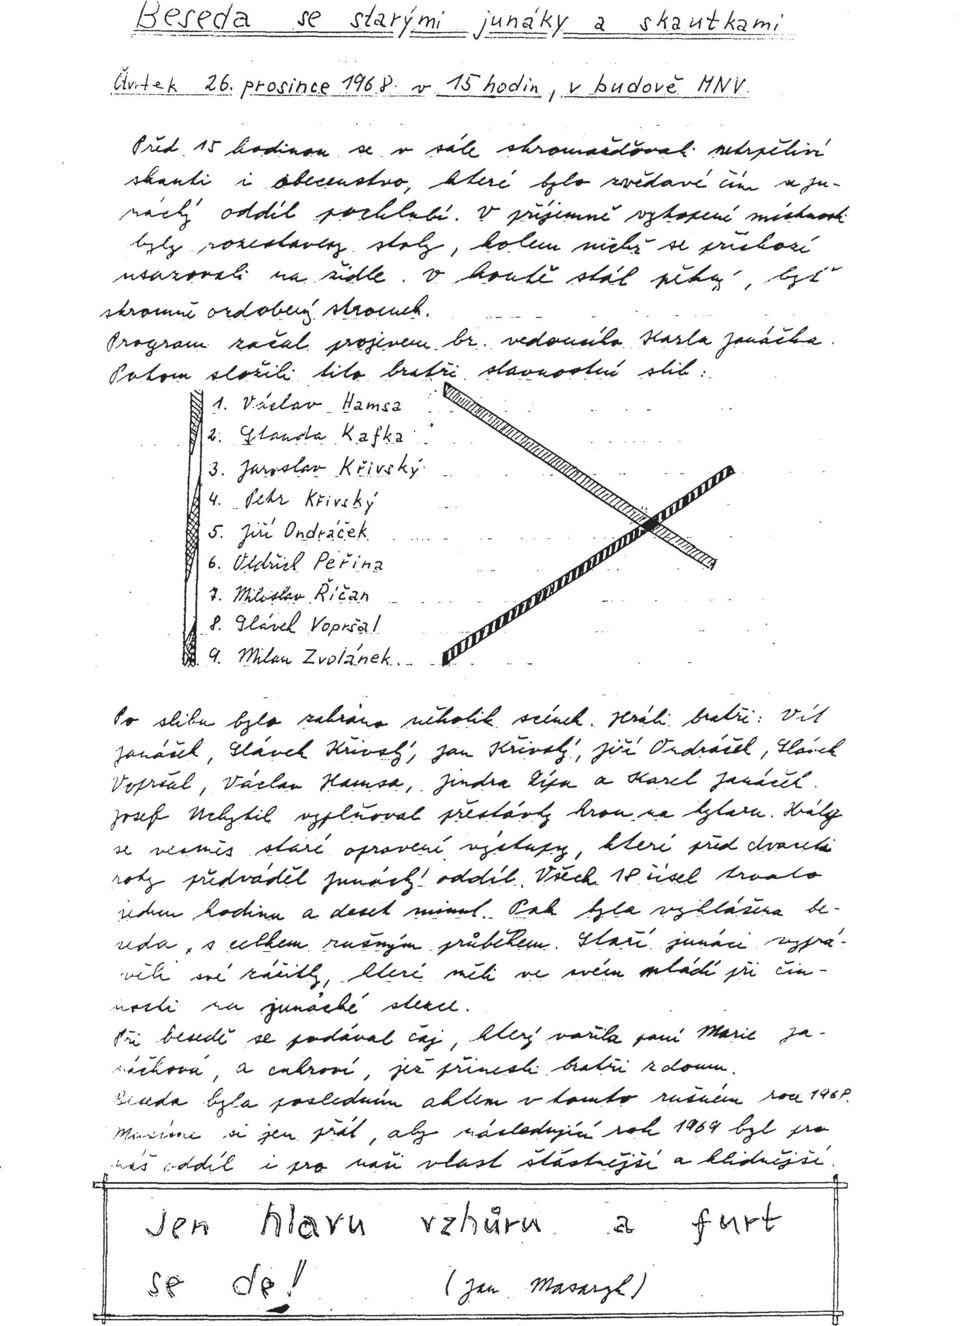 Beseda se starými junáky a skautkami
Čtvrtek 26. prosince 1968 v 15 hodin, v budově MNV.
Před 15 hodinou se v sále shromažďovali netrpěliví
skauti i obecenstvo, které bylo zvědavé čím se ju-
nácký oddíl pochlubí. V příjemně vytopené místnosti
byly rozestaveny stoly, kolem nichž se příchozí
usazovali na židle. V koutě stál pěkný, byť
skromně ozdobený stromek.
Program začal projevem br. vedoucího Karla Janáčka.
Potom složili tito bratři slavnostní slib:
1. Václav Hamsa
2. Standa Kafka
3. Jaroslav Křivský
4. Petr Křivský
5. Jiří Ondráček
6. Oldřich Peřina
7. Miloslav Říčan
8. Slávek Vopršal
9. Milan Zvolánek
Po slibu bylo zahráno několik scének. Hráli bratři: Vít
Janáček, Slávek Křivský, Jan Křivský, Jiří Ondráček, Slávek
Vopršal, Václav Hamsa, Jindra Zýka a Karel Janáček.
Josef Nekytil vyplňoval přestávky hrou na kytaru. Hrály
se vesměs staré opravené výstupy, které před dvaceti
roky předváděl junácký oddíl. Všech 18 čísel trvalo
jednu hodinu a deset minut. Pak byla vyhlášena be-
seda, s celkem rušným průběhem. Staří junáci vyprá-
věli své zážitky, které měli ve svém mládí při čin-
nosti na junácké stezce.
Při besedě se podával čaj, který vařila paní Marie Ja-
náčková, a cukroví, jež přinesli bratři z domu.
Beseda byla posledním aktem v tomto rušném roce 1968.
Musíme si jen přát, aby následující rok 1969 byl pro
náš oddíl i pro naši vlast šťastnější a klidnější.
Jen hlavu vzhůru a furt
se de!
(Jan Masaryk)